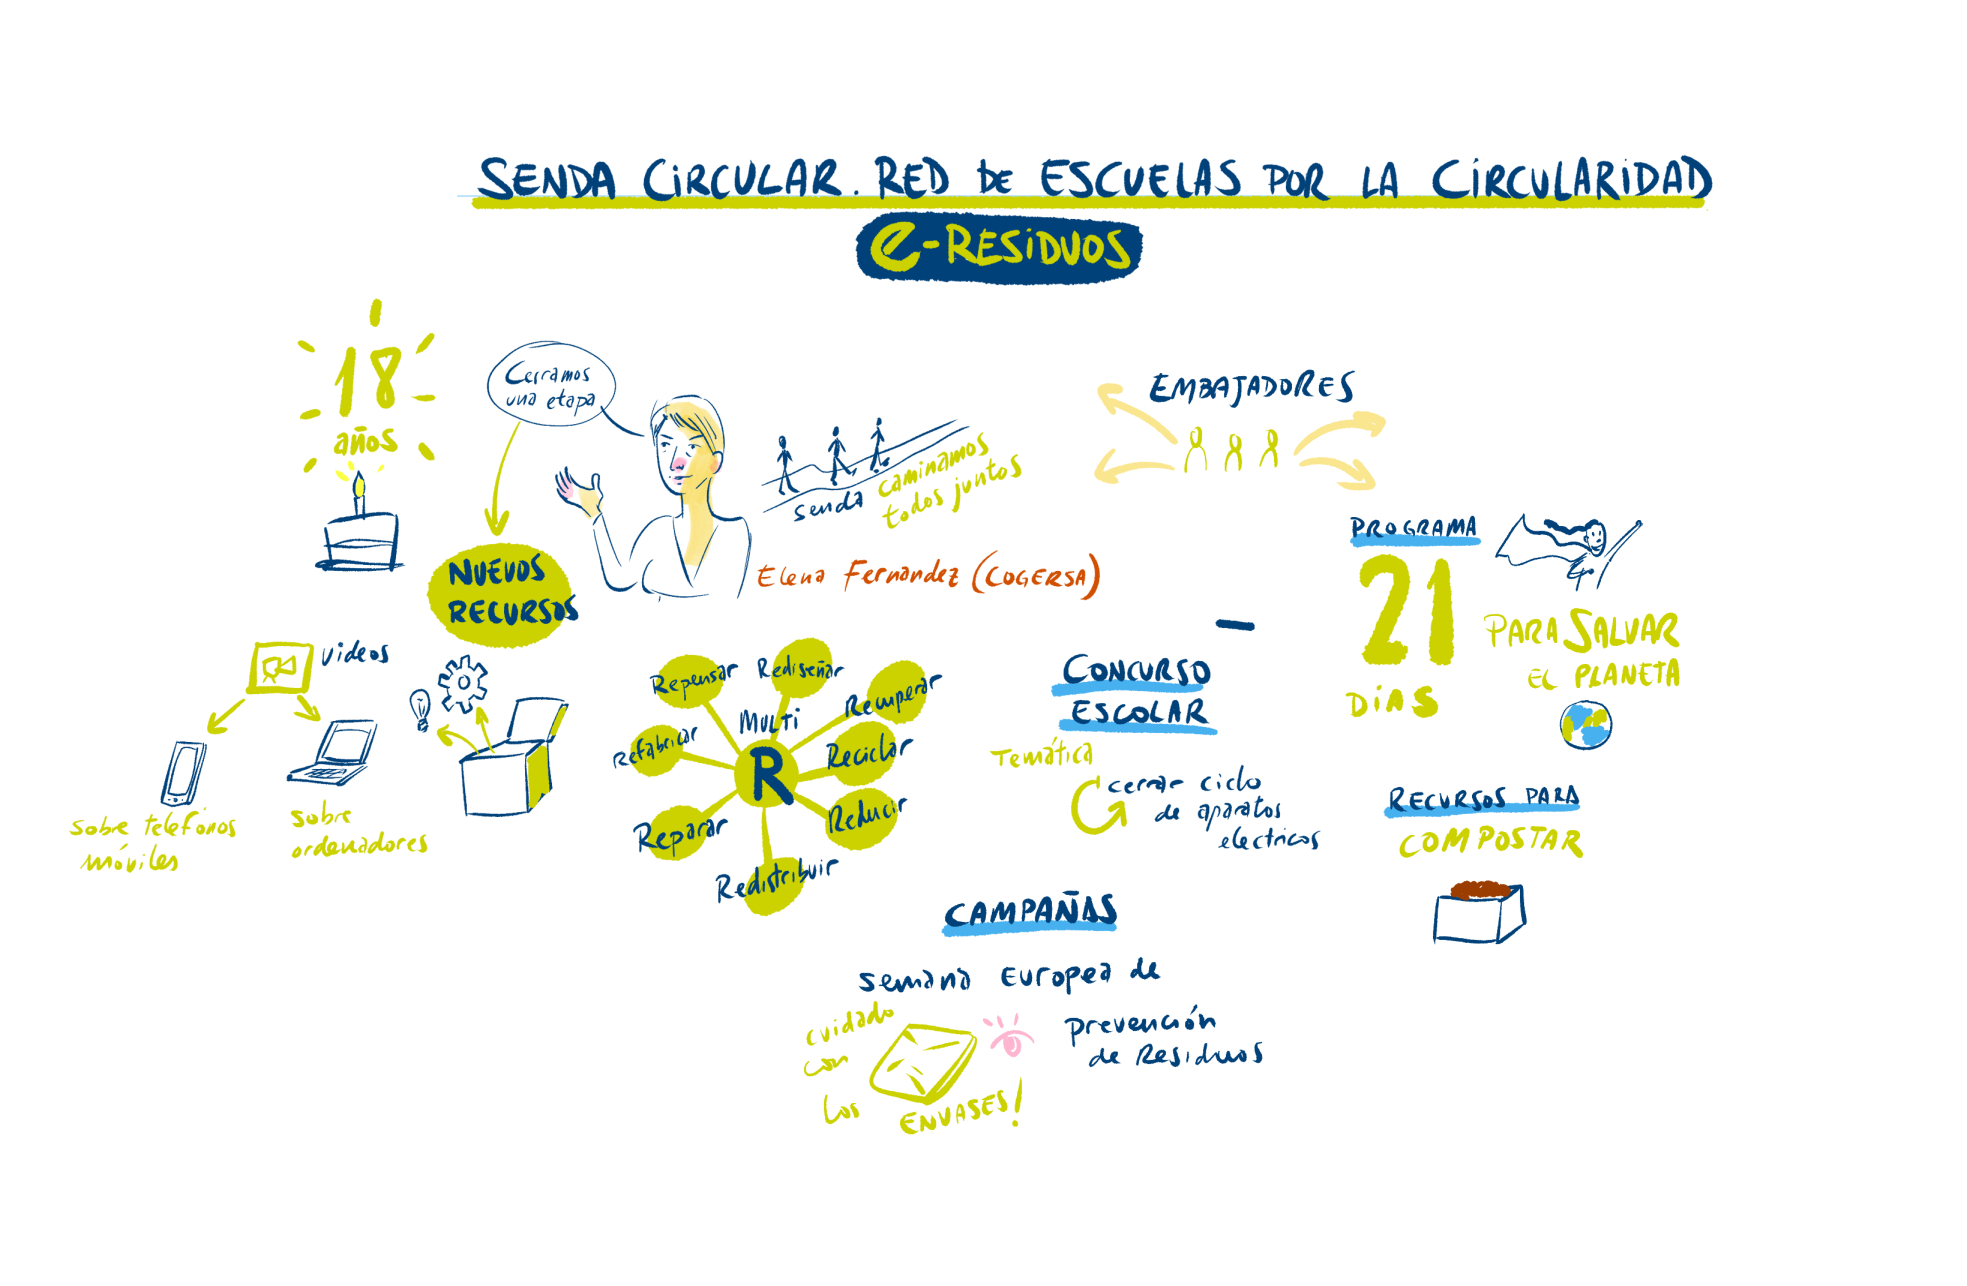 SENDA CIRCULAR. RED DE ESCUELAS POR LA CIRCULARIDAD
e-RESIDUOS
18
años
Cerramos
una etapa
NUEVOS
RECURSOS
senda
caminamos
todos juntos
Elena Fernandez (COGERSA)
EMBAJADORES
PROGRAMA
21
DÍAS
PARA SALVAR
EL PLANETA
videos
sobre telefonos
móviles
sobre
ordenadores
MULTI
R
Repensar
Rediseñar
Recuperar
Reciclar
Reducir
Redistribuir
Reparar
Refabricar
CONCURSO
ESCOLAR
Temática
cerrar ciclo
de aparatos
electricos
RECURSOS PARA
COMPOSTAR
CAMPAÑAS
Semana Europea de
prevención
de Residuos
cuidado
con
los
ENVASES!